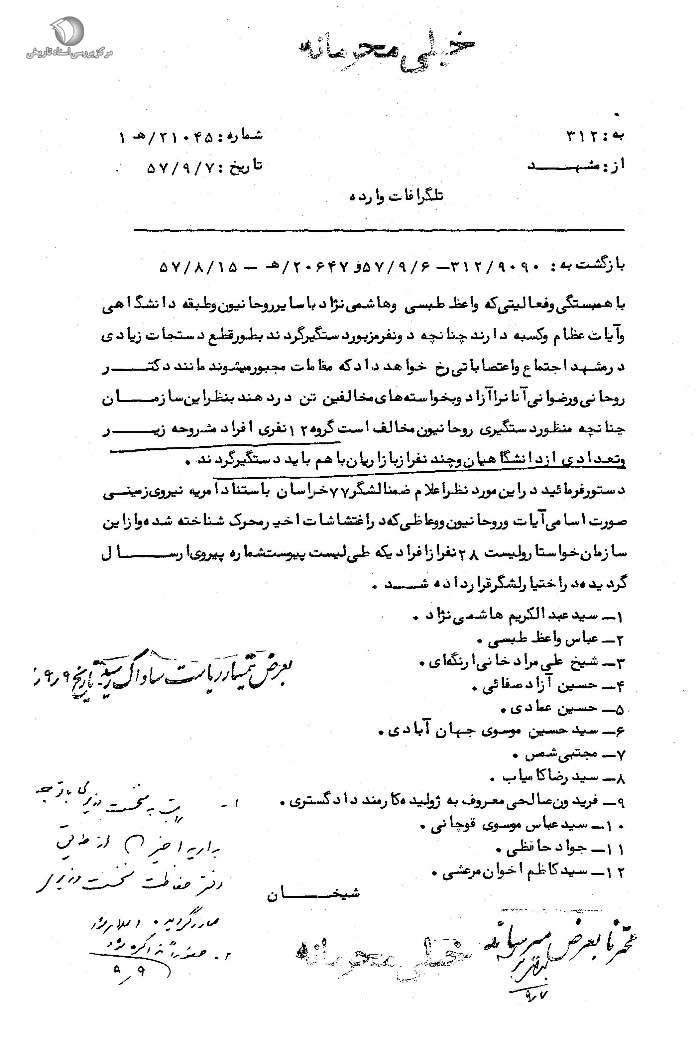 مرکز بررسی اسناد تاریخی
خیلی محرمانه
به: ۳۱۲
شماره: ۲۱۰۴۵/هـ ۱
از: مشهد
تاریخ: ۵۷/۹/۷
تلگرافات وارده
بازگشت به: ۳۱۲/۹۰۹۰ــ ۵۷/۹/۶و ۲۰۶۴۷/هـ ــ ۵۷/۸/۱۵
با همبستگی و فعالیتی که واعظ طبسی و هاشمی نژاد با سایر روحانیون و طبقه دانشگاهی
و آیات عظام و کسبه دارند چنانچه دونفر مزبور دستگیر گردند بطور قطع دستجات زیادی
در مشهد اجتماع و اعتصاباتی رخ خواهد داد که مقامات مجبور میشوند مانند دکتر
روحانی و رضوانی آنانرا آزاد و بخواسته های مخالفین تن در دهند بنظر این سازمان
چنانچه منظور دستگیری روحانیون مخالف است گروه ۱۲ نفری افراد مشروحه زیر
و تعدادی از دانشگاهیان و چند نفر از بازاریان با هم باید دستگیر گردند .
دستور فرمائید در این مورد نظر اعلام ضمنا لشگر ۷۷ خراسان باستناد امریه نیروی زمینی
صورت اسامی آیات و روحانیون و وعاظی که در اغتشاشات اخیر محرک شناخته شده و از این
سازمان خواستار و لیست ۲۸ نفر از افرادیکه طی لیست پیوست شماره پیروی ارسال
گردیده در اختیار لشگر قرار داده شد .
۱ــ سید عبدالکریم هاشمی نژاد .
۲ــ عباس واعظ طبسی .
۳ــ شیخ علی مرادخانی ارنگه‌ای .
۴ــ حسین آزاد صفائی .
۵ــ حسین عمادی .
۶ــ سید حسین موسوی جهان آبادی .
۷ــ مجتبی شمس .
۸ــ سید رضا کامیاب .
۹ــ فریدون صالحی معروف به ژولیده کارمند دادگستری .
۱۰ــ سید عباس موسوی قوچانی .
۱۱ــ جواد حافظی .
۱۲ــ سید کاظم اخوان مرعشی .
شیخان
بعرض تیمسار ریاست ساواک رسید تاریخ ۹ر۹
۱-
به نخست وزیری با توجه
از طریق
دفتر حفاظت نخست وزیری
صادر گردید
۲-
۹ر۹
محترما بعرض میرساند
۹ر۷
خیلی محرمانه